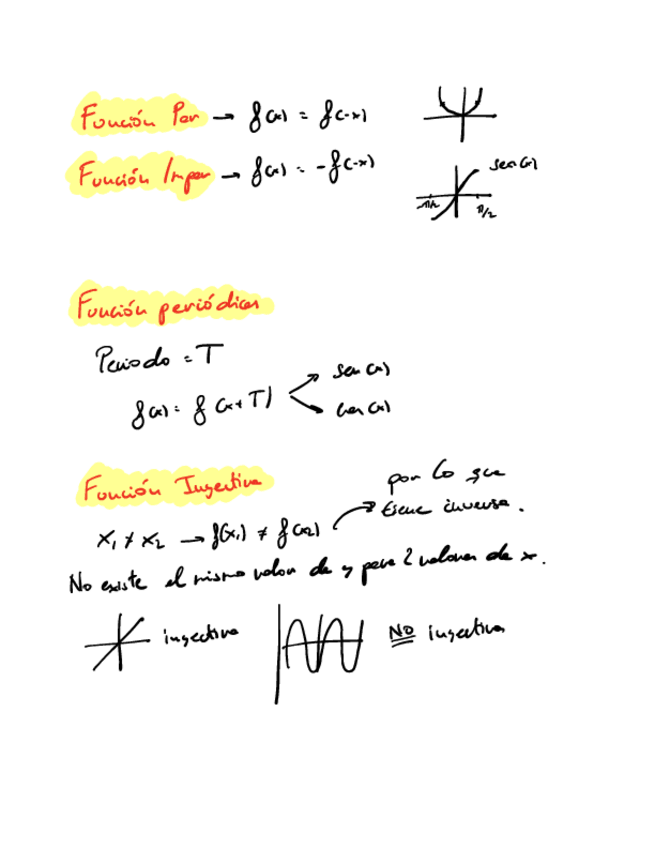 Función Par → f(x) = f(-x)
Función Impar → f(x) = -f(-x)
sen(x)
-π/2
π/2
Función periódica
Periodo = T
f(x) = f(x+T)
sen(x)
cos(x)
Función Inyectiva
por lo que
tiene inversa.
x₁ ≠ x₂ → f(x₁) ≠ f(x₂)
No existe el mismo valor de y para 2 valores de x.
inyectiva
NO inyectiva